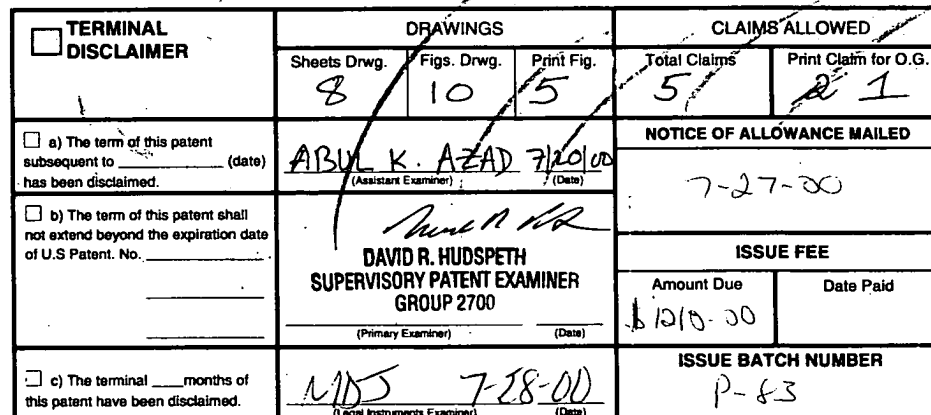 TERMINAL DISCLAIMER
DRAWINGS
CLAIMS ALLOWED
Sheets Drwg.
Figs. Drwg.
Print Fig.
Total Claims
Print Claim for O.G.
8
10
5
5
1
a) The term of this patent
subsequent to ____________ (date)
has been disclaimed.
ABUL K. AZAD 7/20/00
(Assistant Examiner)
(Date)
NOTICE OF ALLOWANCE MAILED
7-27-00
b) The term of this patent shall
not extend beyond the expiration date
of U.S Patent. No. ____________.
DAVID R. HUDSPETH
SUPERVISORY PATENT EXAMINER
GROUP 2700
(Primary Examiner)
(Date)
ISSUE FEE
Amount Due
Date Paid
$1210-00
c) The terminal ____months of
this patent have been disclaimed.
7-28-00
(Legal Instruments Examiner)
(Date)
ISSUE BATCH NUMBER
P-83